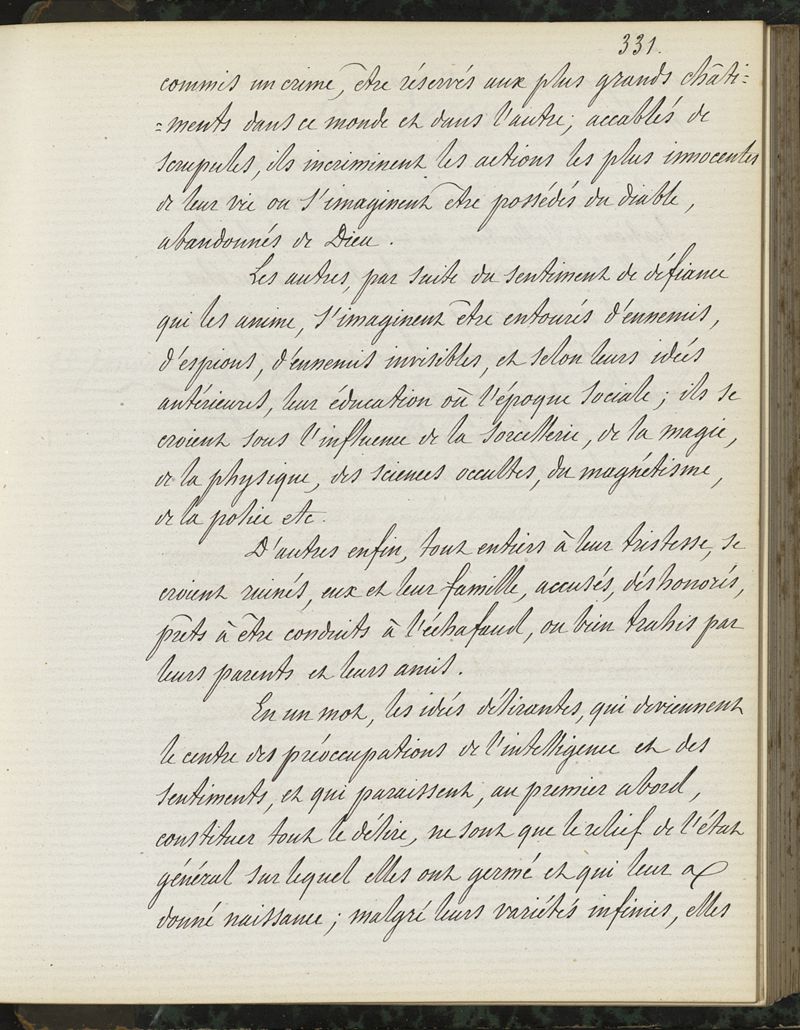 331.
commis un crime, être réservés aux plus grands châti=
=ments dans ce monde et dans l'autre; accablés de
scrupules, ils incriminent les actions les plus innocentes
de leur vie ou s'imaginent être possédés du diable,
abandonnés de Dieu.
Les autres, par suite du sentiment de défiance
qui les anime, s'imaginent être entourés d'ennemis,
d'espions, d'ennemis invisibles, et selon leurs idées
antérieures, leur éducation où l'époque sociale; ils se
croient sous l'influence de la sorcellerie, de la magie,
de la physique, des sciences occultes, du magnétisme,
de la police etc.
D'autres enfin, tout entiers à leur tristesse, se
croient ruinés, eux et leur famille, accusés, déshonorés,
prêts à être conduits à l'échafaud, ou bien trahis par
leurs parents et leurs amis.
En un mot, les idées délirantes, qui deviennent
le centre des préoccupations de l'intelligence et des
sentiments, et qui paraissent, au premier abord,
constituer tout le délire, ne sont que le relief de l'état
général sur lequel elles ont germé et qui leur a
donné naissance; malgré leurs variétés infinies, elles